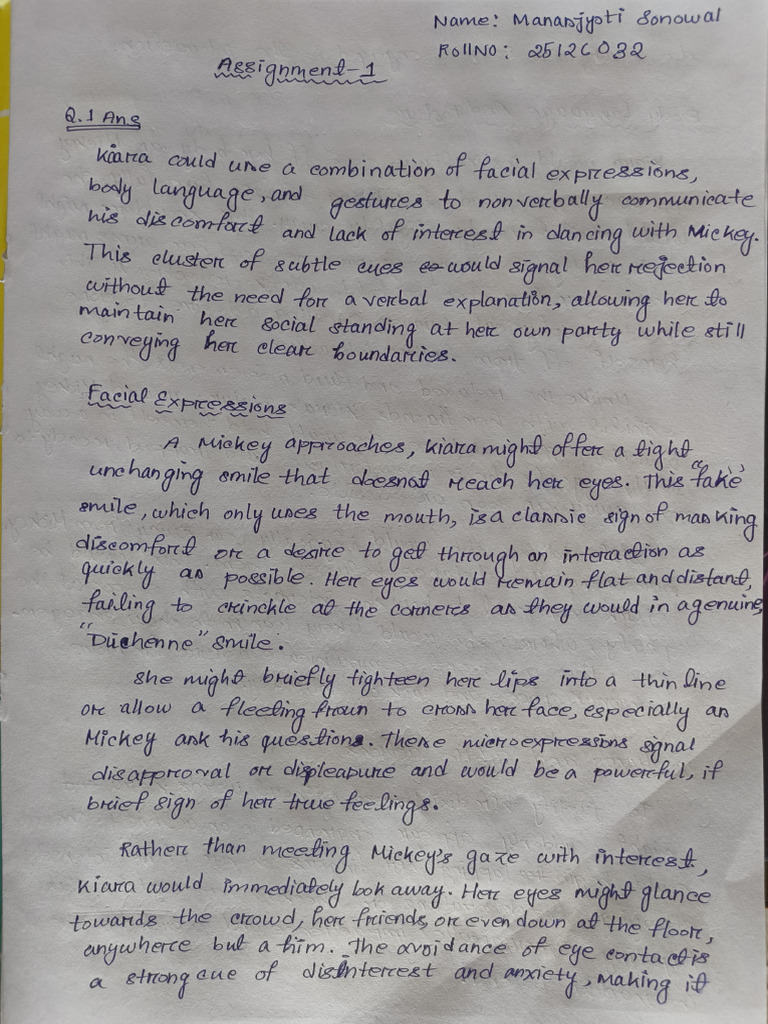 Name: Manasjyoti Sonowal
Roll NO: 2512C032
Assignment-1
Q.1 Ans
Kiara could use a combination of facial expressions,
body language, and gestures to nonverbally communicate
his discomfort and lack of interest in dancing with Mickey.
This cluster of subtle cues would signal her rejection
without the need for a verbal explanation, allowing her to
maintain her social standing at her own party while still
conveying her clear boundaries.
Facial Expressions
A Mickey approaches, Kiara might offer a tight
unchanging smile that doesnot reach her eyes. This "fake"
smile, which only uses the mouth, is a classic sign of masking
discomfort or a desire to get through an interaction as
quickly as possible. Her eyes would remain flat and distant,
failing to crinkle at the corners as they would in a genuine,
"Duchenne" smile.
She might briefly tighteen her lips into a thin line
or allow a fleeting frown to cross her face, especially as
Mickey ask his questions. These microexpressions signal
disapproval or displeapure and would be a powerful, if
brief sign of her true feelings.
Rather than meeting Mickey's gaze with interest,
Kiara would immediately look away. Her eyes might glance
towards the crowd, her friends, or even down at the floor,
anywhere but a him. The avoidance of eye contact is
a strong cue of disinterest and anxiety, making it